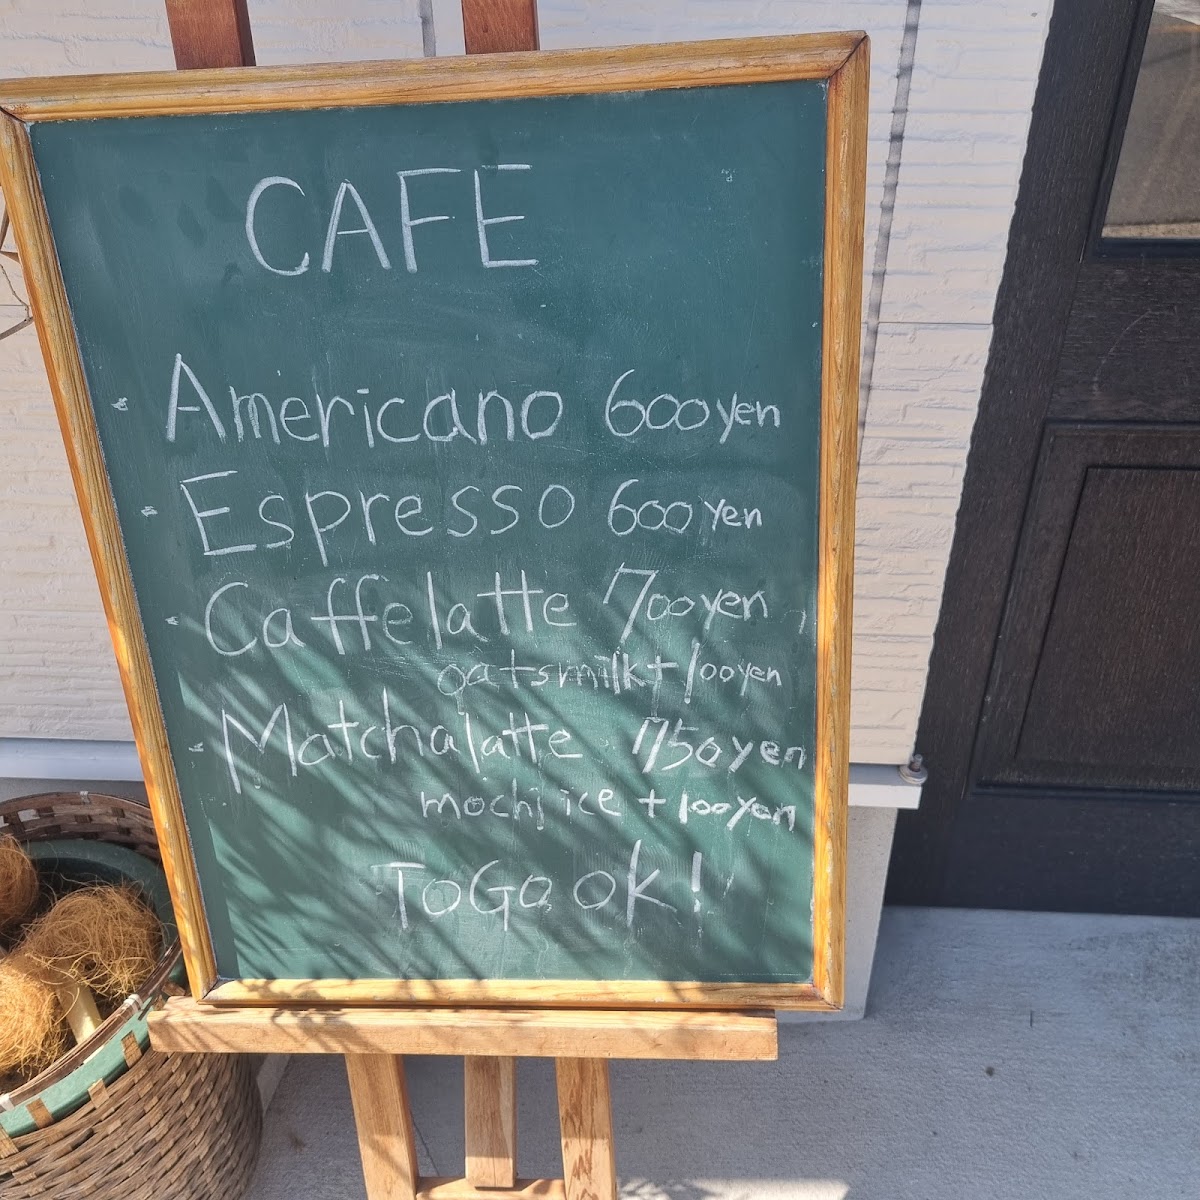 CAFE
Americano 600yen
Espresso 600yen
Caffelatte 700yen
oatsmilk+100yen
Matchalatte 750yen
mochi ice +100yen
ToGo ok!